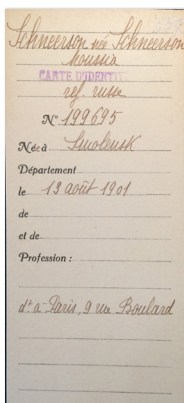 Schneerson née Schneerson
Moussia
CARTE D'IDENTITÉ
ref. russe
N° 199695
Née à Smolensk
Département
le 13 août 1901
de
et de
Profession :
dt à Paris, 9 rue Boulard